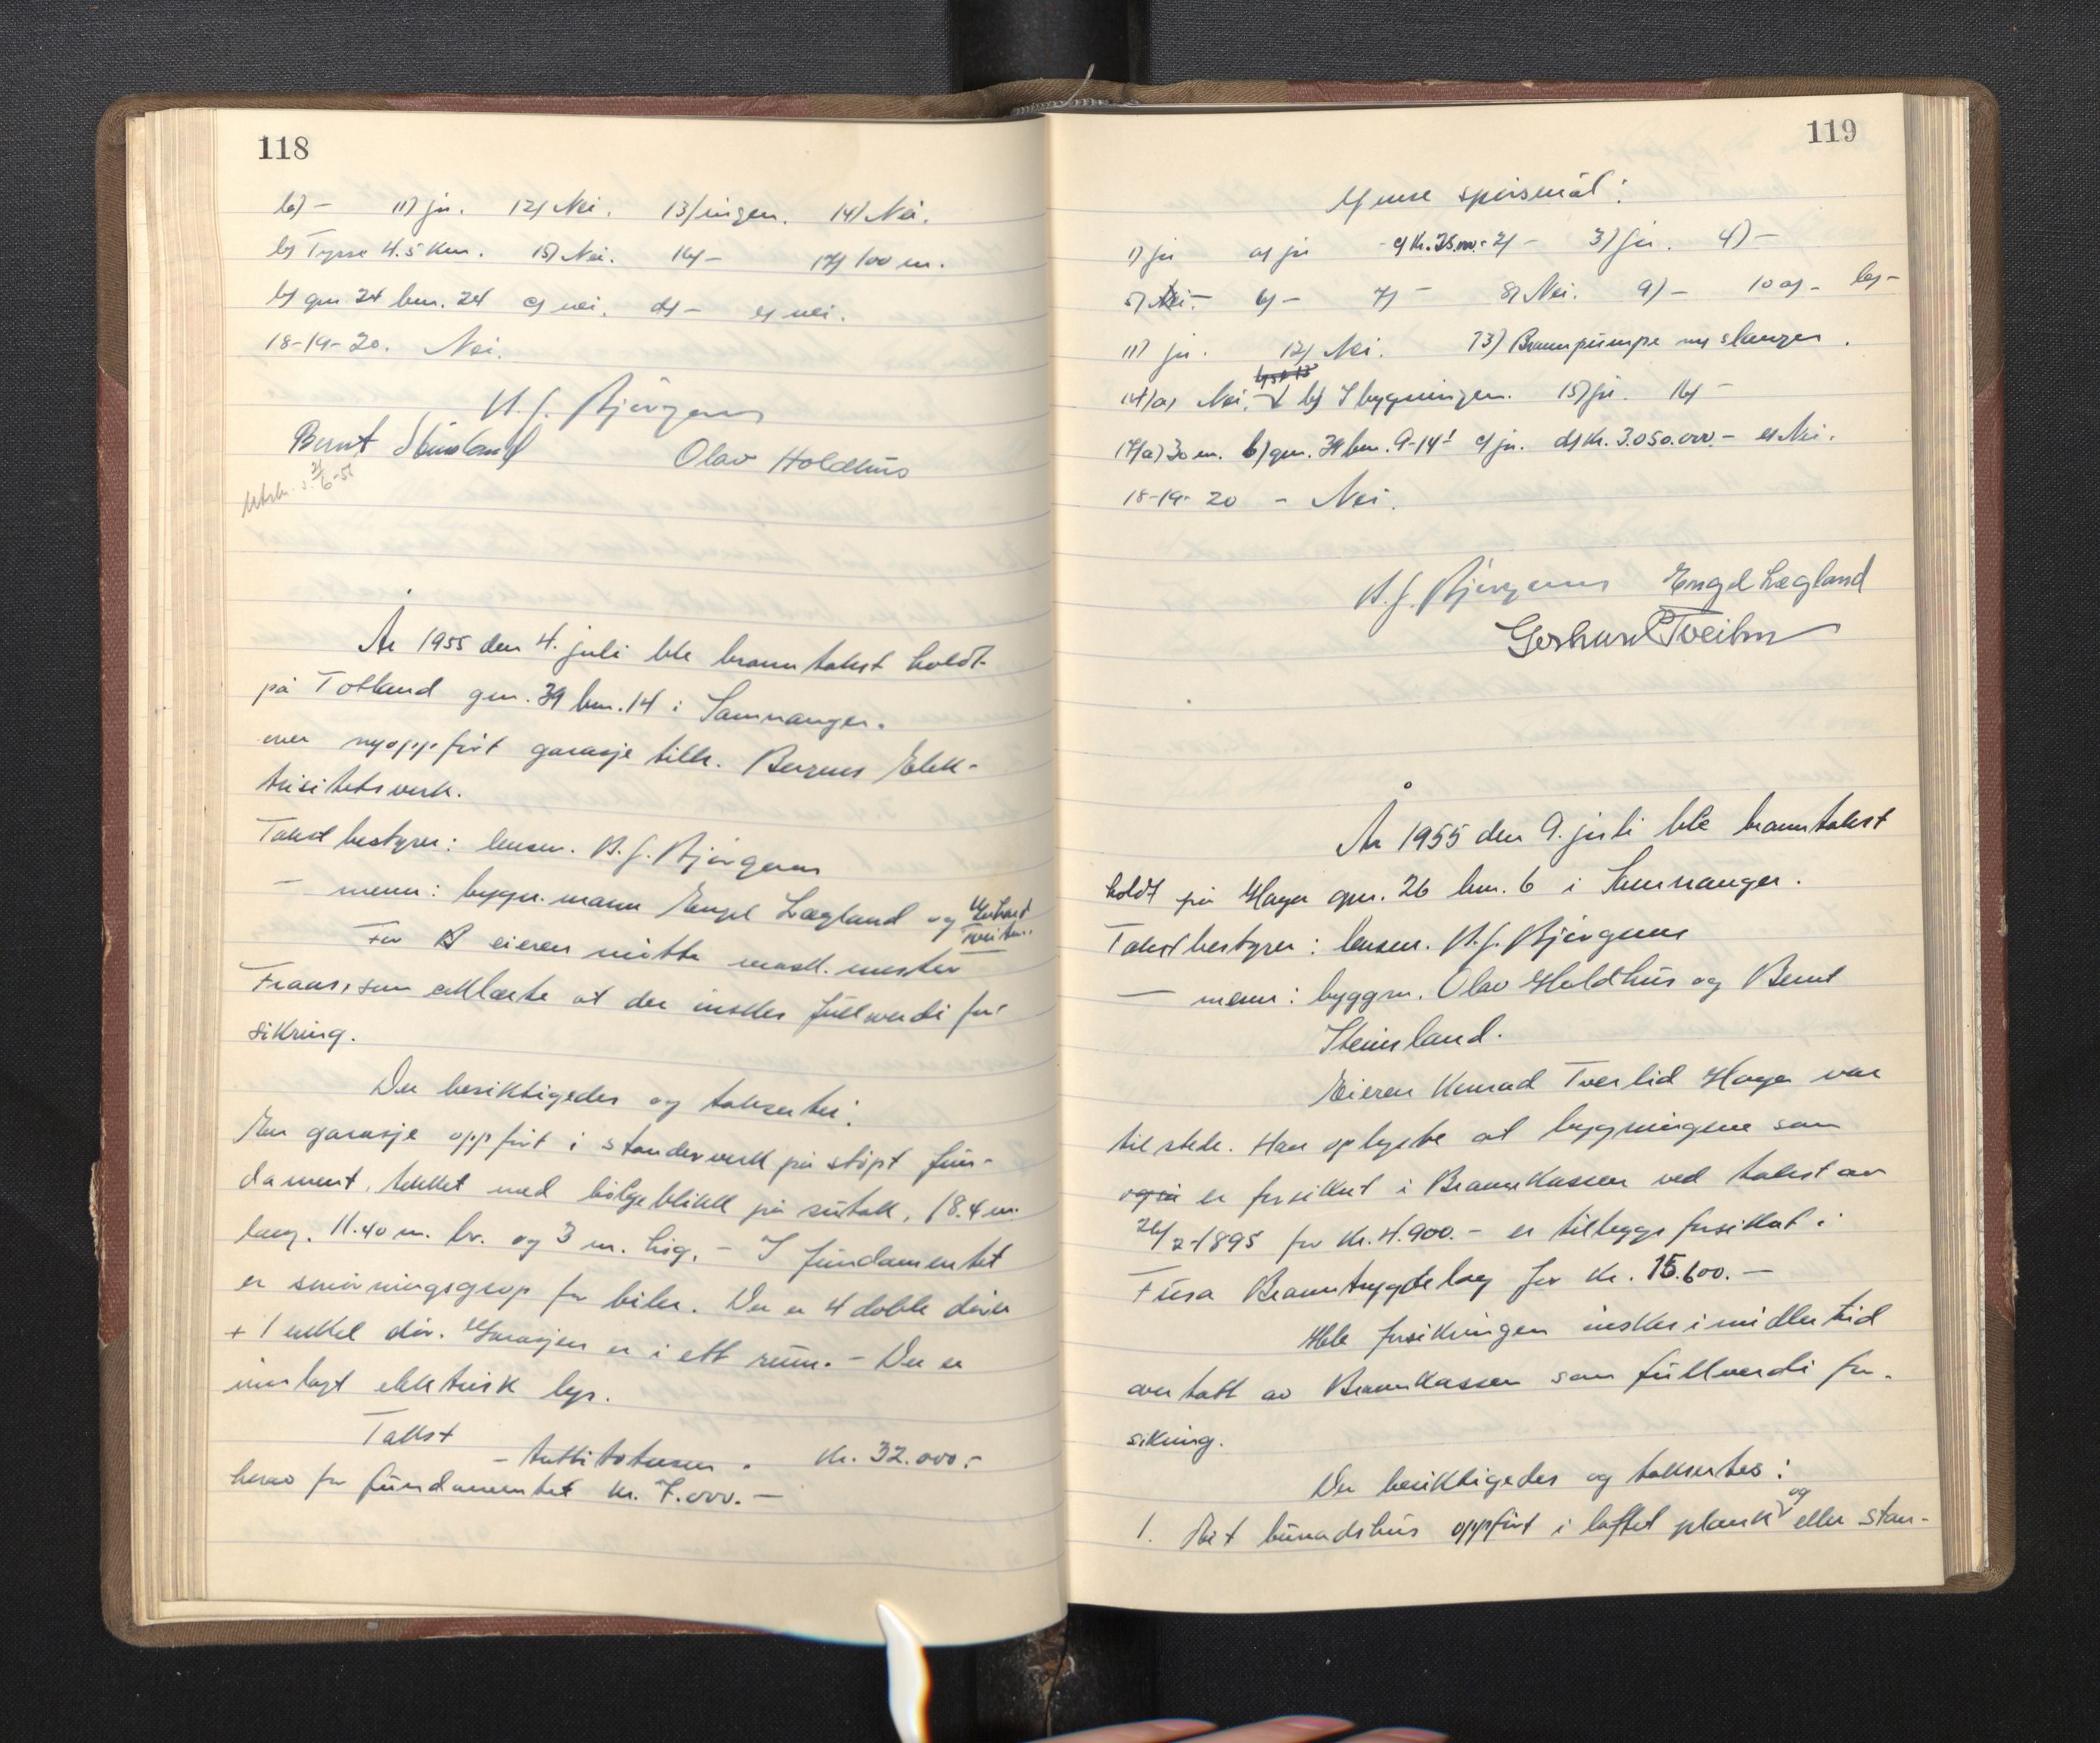 118
b) – 11) ja. 12) Nei. 13) ingen. 14) Nei.
b) Tysse 4.5 km. 15) Nei. 16) – 17) 100 m.
b) gnr. 24 bnr. 24 c) nei. d) – e) nei.
18-19-20. Nei.
N. J. Bjørgum
Bernt Steinsland Olav Holdhus
År 1955 den 4. juli ble branntakst holdt
på Totland gnr. 39 bnr. 14 i Samnanger.
over nyoppført garasje tilh. Bergens Elek-
trisitetsverk.
Takst bestyrer: lensm. N. J. Bjørgum
– menn: byggm. mann Engel Lægland og Gerhard
Tveiten.
For eieren møtte mask. mester
Fraas, som erklærte at der ønskes fullverdi for-
sikring.
Der besiktigedes og taksertes:
En garasje oppført i standerverk på støpt fun-
dament, tekket med bølgeblikk på sutak, 18.4 m.
lang. 11.40 m. br. og 3 m. høg. – I fundamentet
er smørningsgrop for biler. Der er 4 doble dører
+ 1 enkel dør. Garasjen er i ett rum. – Der er
innlagt elektrisk lys.
Takst
– trettitotusen. Kr. 32.000.–
herav for fundamentet kr. 7.000.–
119
Ymse spørsmål:
1) ja a) ja – c) Kr. 25.000.– 2) – 3) ja. 4) –
5) Nei – 6) – 7) – 8) Nei. 9) – 10 a) – b) –
11) ja. 12) Nei. 13) Brannpumpe m/ slanger.
14) a) Nei. b) I bygningen. 15) ja. 16) –
17) a) 30 m. b) gnr. 39 bnr. 9-14! c) ja. d) Kr. 3.050.000.– e) Nei.
18-19-20 – Nei.
N. J. Bjørgum Engel Lægland
Gerhard Tveiten
År 1955 den 9. juli ble branntakst
holdt på Haga gnr. 26 bnr. 6 i Samnanger.
Takst bestyrer: lensm. N. J. Bjørgum
– menn: byggm. Olav Holdhus og Bernt
Steinsland.
Eieren Konrad Tverlid Haga var
tilstede. Han oplyste at bygningene som
også er forsikret i Brannkassen ved takst av
26/2-1895 for kr. 4.900.– er tilleggsforsikret i
Fusa Branntrygdelag for kr. 15.600.–
Hele forsikringen ønskes imidlertid
overtatt av Brannkassen som fullverdi for-
sikring.
Der besiktigedes og taksertes:
1. Et bunadshus oppført i laftet plank og eller stan-